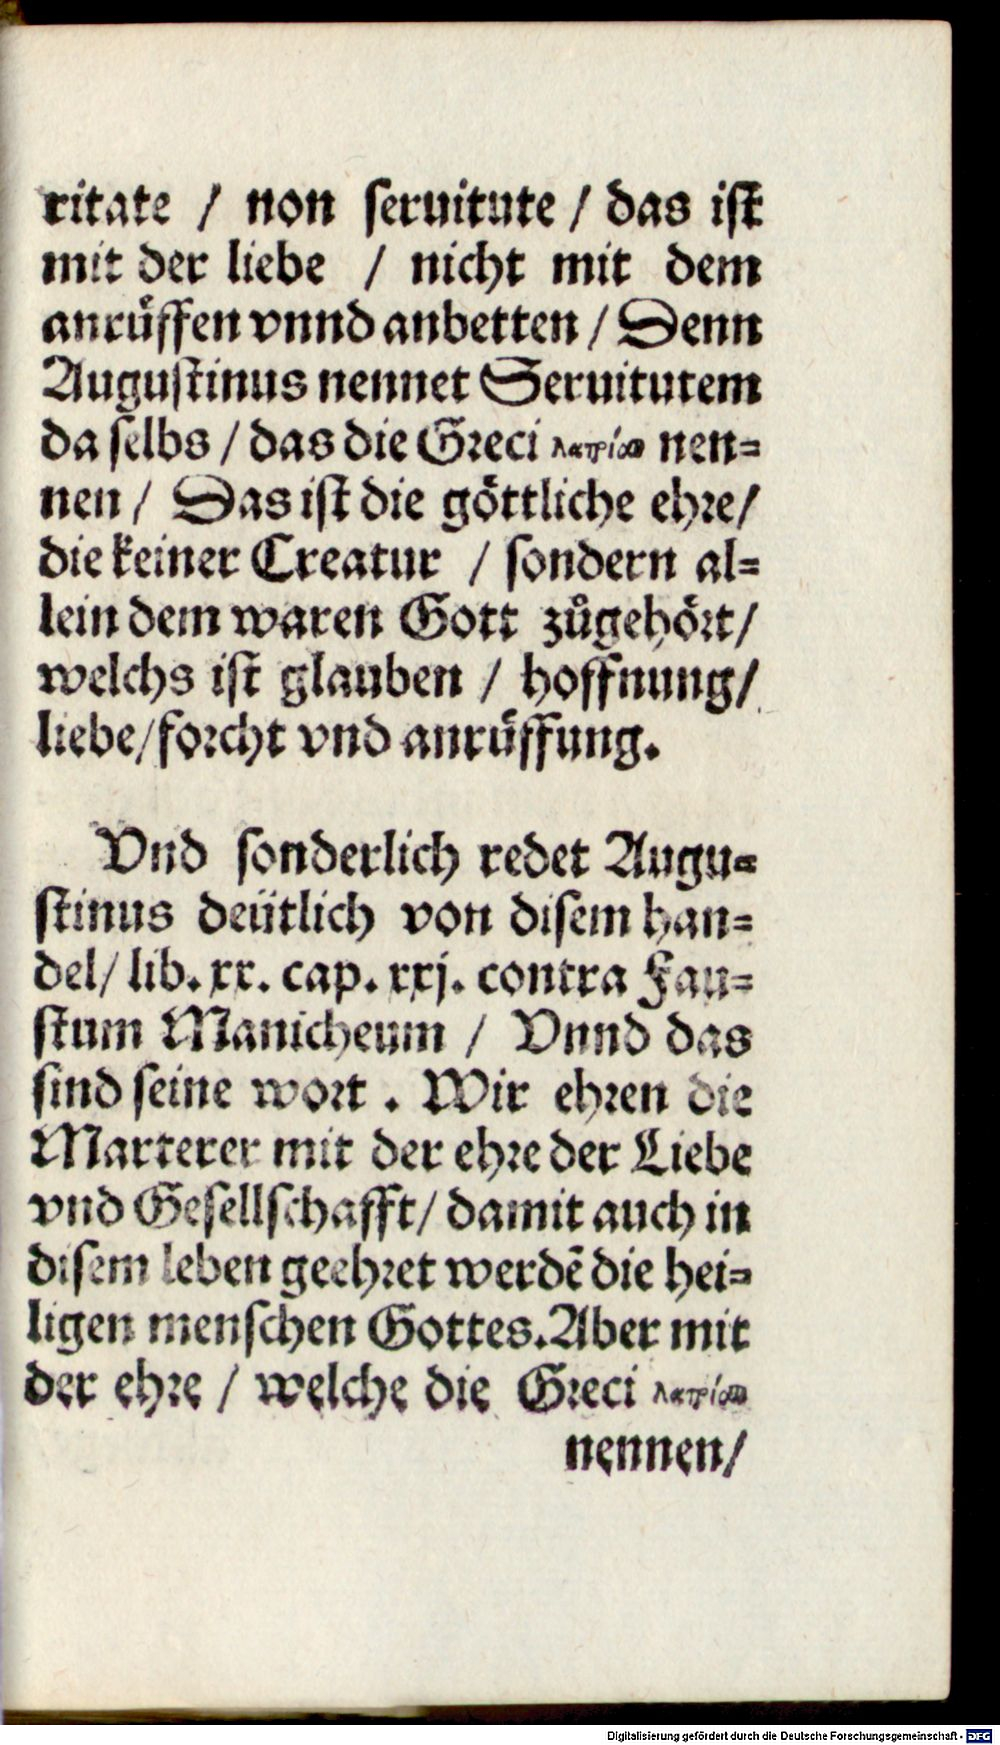 ritate / non seruitute / das ist
mit der liebe / nicht mit dem
anruͤffen vnnd anbetten / Denn
Augustinus nennet Seruitutem
da selbs / das die Greci λατρίαν nen=
nen / Das ist die goͤttliche ehre/
die keiner Creatur / sondern al=
lein dem waren Gott zuͦgehoͤrt/
welchs ist glauben / hoffnung/
liebe/forcht vnd anruͤffung.
Vnd sonderlich redet Augu=
stinus deütlich von disem han=
del/ lib. xx. cap. xxj. contra Fau=
stum Manicheum / Vnnd das
sind seine wort . Wir ehren die
Marterer mit der ehre der Liebe
vnd Gesellschafft/ damit auch in
disem leben geehret werdē die hei=
ligen menschen Gottes.Aber mit
der ehre / welche die Greci λατρίαν
nennen/
Digitalisierung gefördert durch die Deutsche Forschungsgemeinschaft - DFG